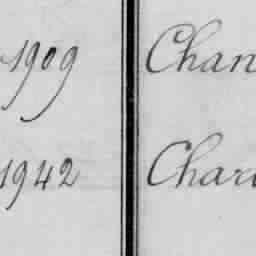 1909 Chan
1942 Char